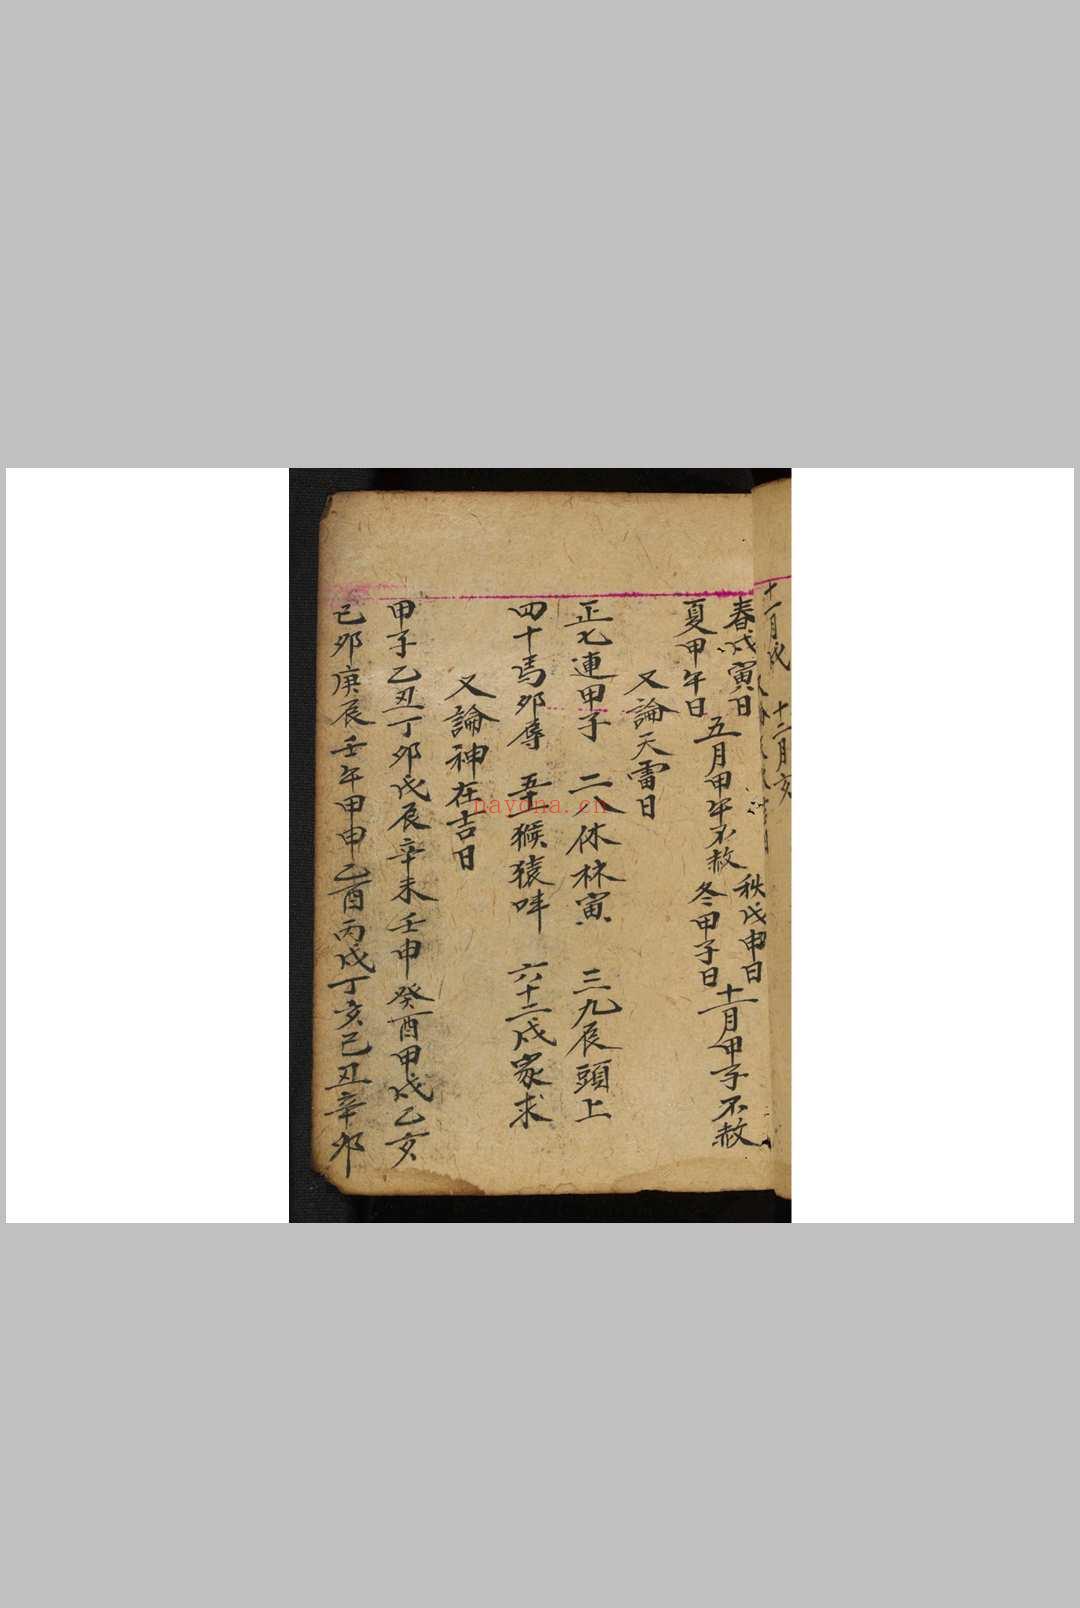 十一月戌 十二月亥
春戊寅日 秋戊申日
夏甲午日 五月甲午不赦 冬甲子日 十一月甲子不赦
又論天雷日
正七連甲子 二八休林寅 三九辰頭上
四十馬卯辱 五十一猴猿吽 六十二戌家求
又論神在吉日
甲子乙丑丁卯戊辰辛未壬申癸酉甲戌乙亥
己卯庚辰壬午甲申乙酉丙戌丁亥己丑辛卯
nayona.cn